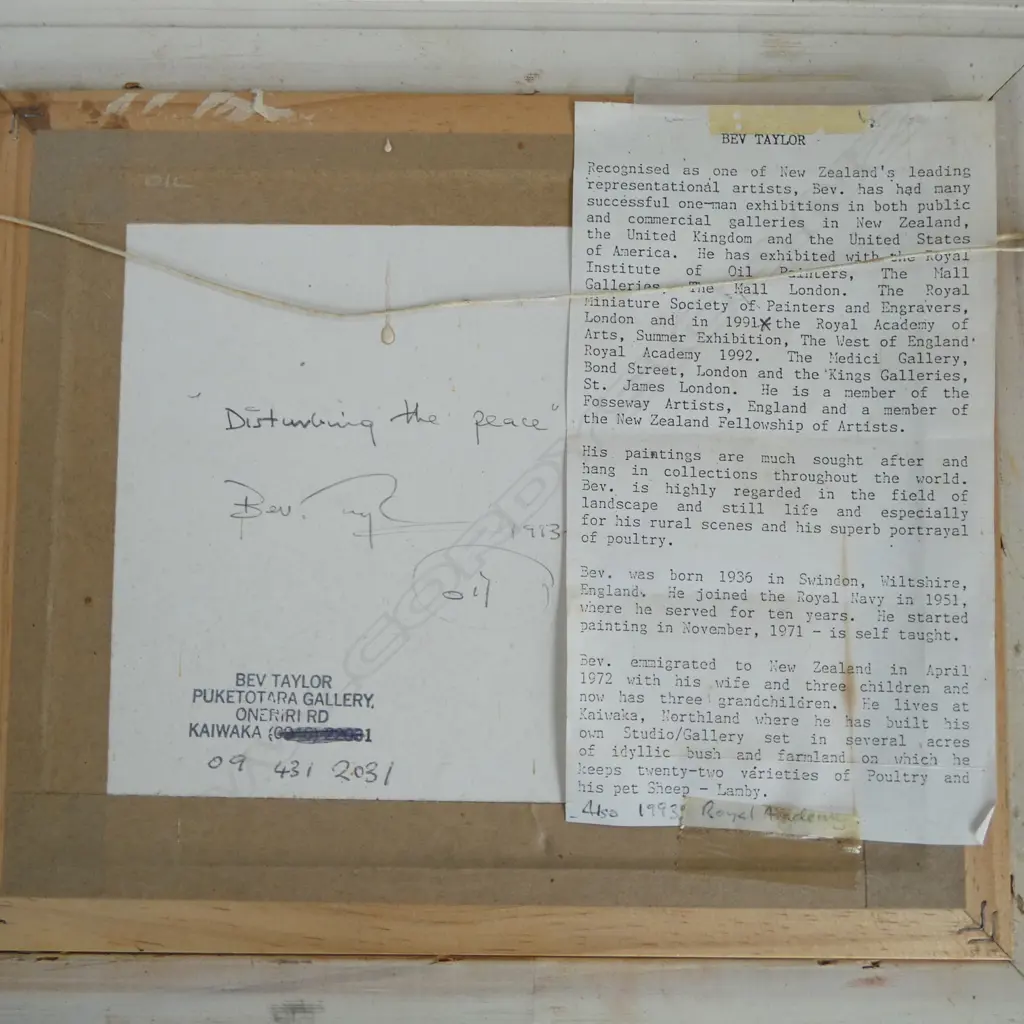 OIL
"Disturbing the peace"
Bev. Taylor 1993
oil
BEV TAYLOR
PUKETOTARA GALLERY,
ONERIRI RD
KAIWAKA
09 431 2031
BEV TAYLOR
Recognised as one of New Zealand's leading
representational artists, Bev. has had many
successful one-man exhibitions in both public
and commercial galleries in New Zealand,
the United Kingdom and the United States
of America. He has exhibited with the Royal
Institute of Oil Painters, The Mall
Galleries, The Mall London. The Royal
Miniature Society of Painters and Engravers,
London and in 1991 the Royal Academy of
Arts, Summer Exhibition, The West of England
Royal Academy 1992. The Medici Gallery,
Bond Street, London and the Kings Galleries,
St. James London. He is a member of the
Fosseway Artists, England and a member of
the New Zealand Fellowship of Artists.
His paintings are much sought after and
hang in collections throughout the world.
Bev. is highly regarded in the field of
landscape and still life and especially
for his rural scenes and his superb portrayal
of poultry.
Bev. was born 1936 in Swindon, Wiltshire,
England. He joined the Royal Navy in 1951,
where he served for ten years. He started
painting in November, 1971 - is self taught.
Bev. emmigrated to New Zealand in April
1972 with his wife and three children and
now has three grandchildren. He lives at
Kaiwaka, Northland where he has built his
own Studio/Gallery set in several acres
of idyllic bush and farmland on which he
keeps twenty-two varieties of Poultry and
his pet Sheep - Lamby.
Also 1993 Royal Academy
CORDY